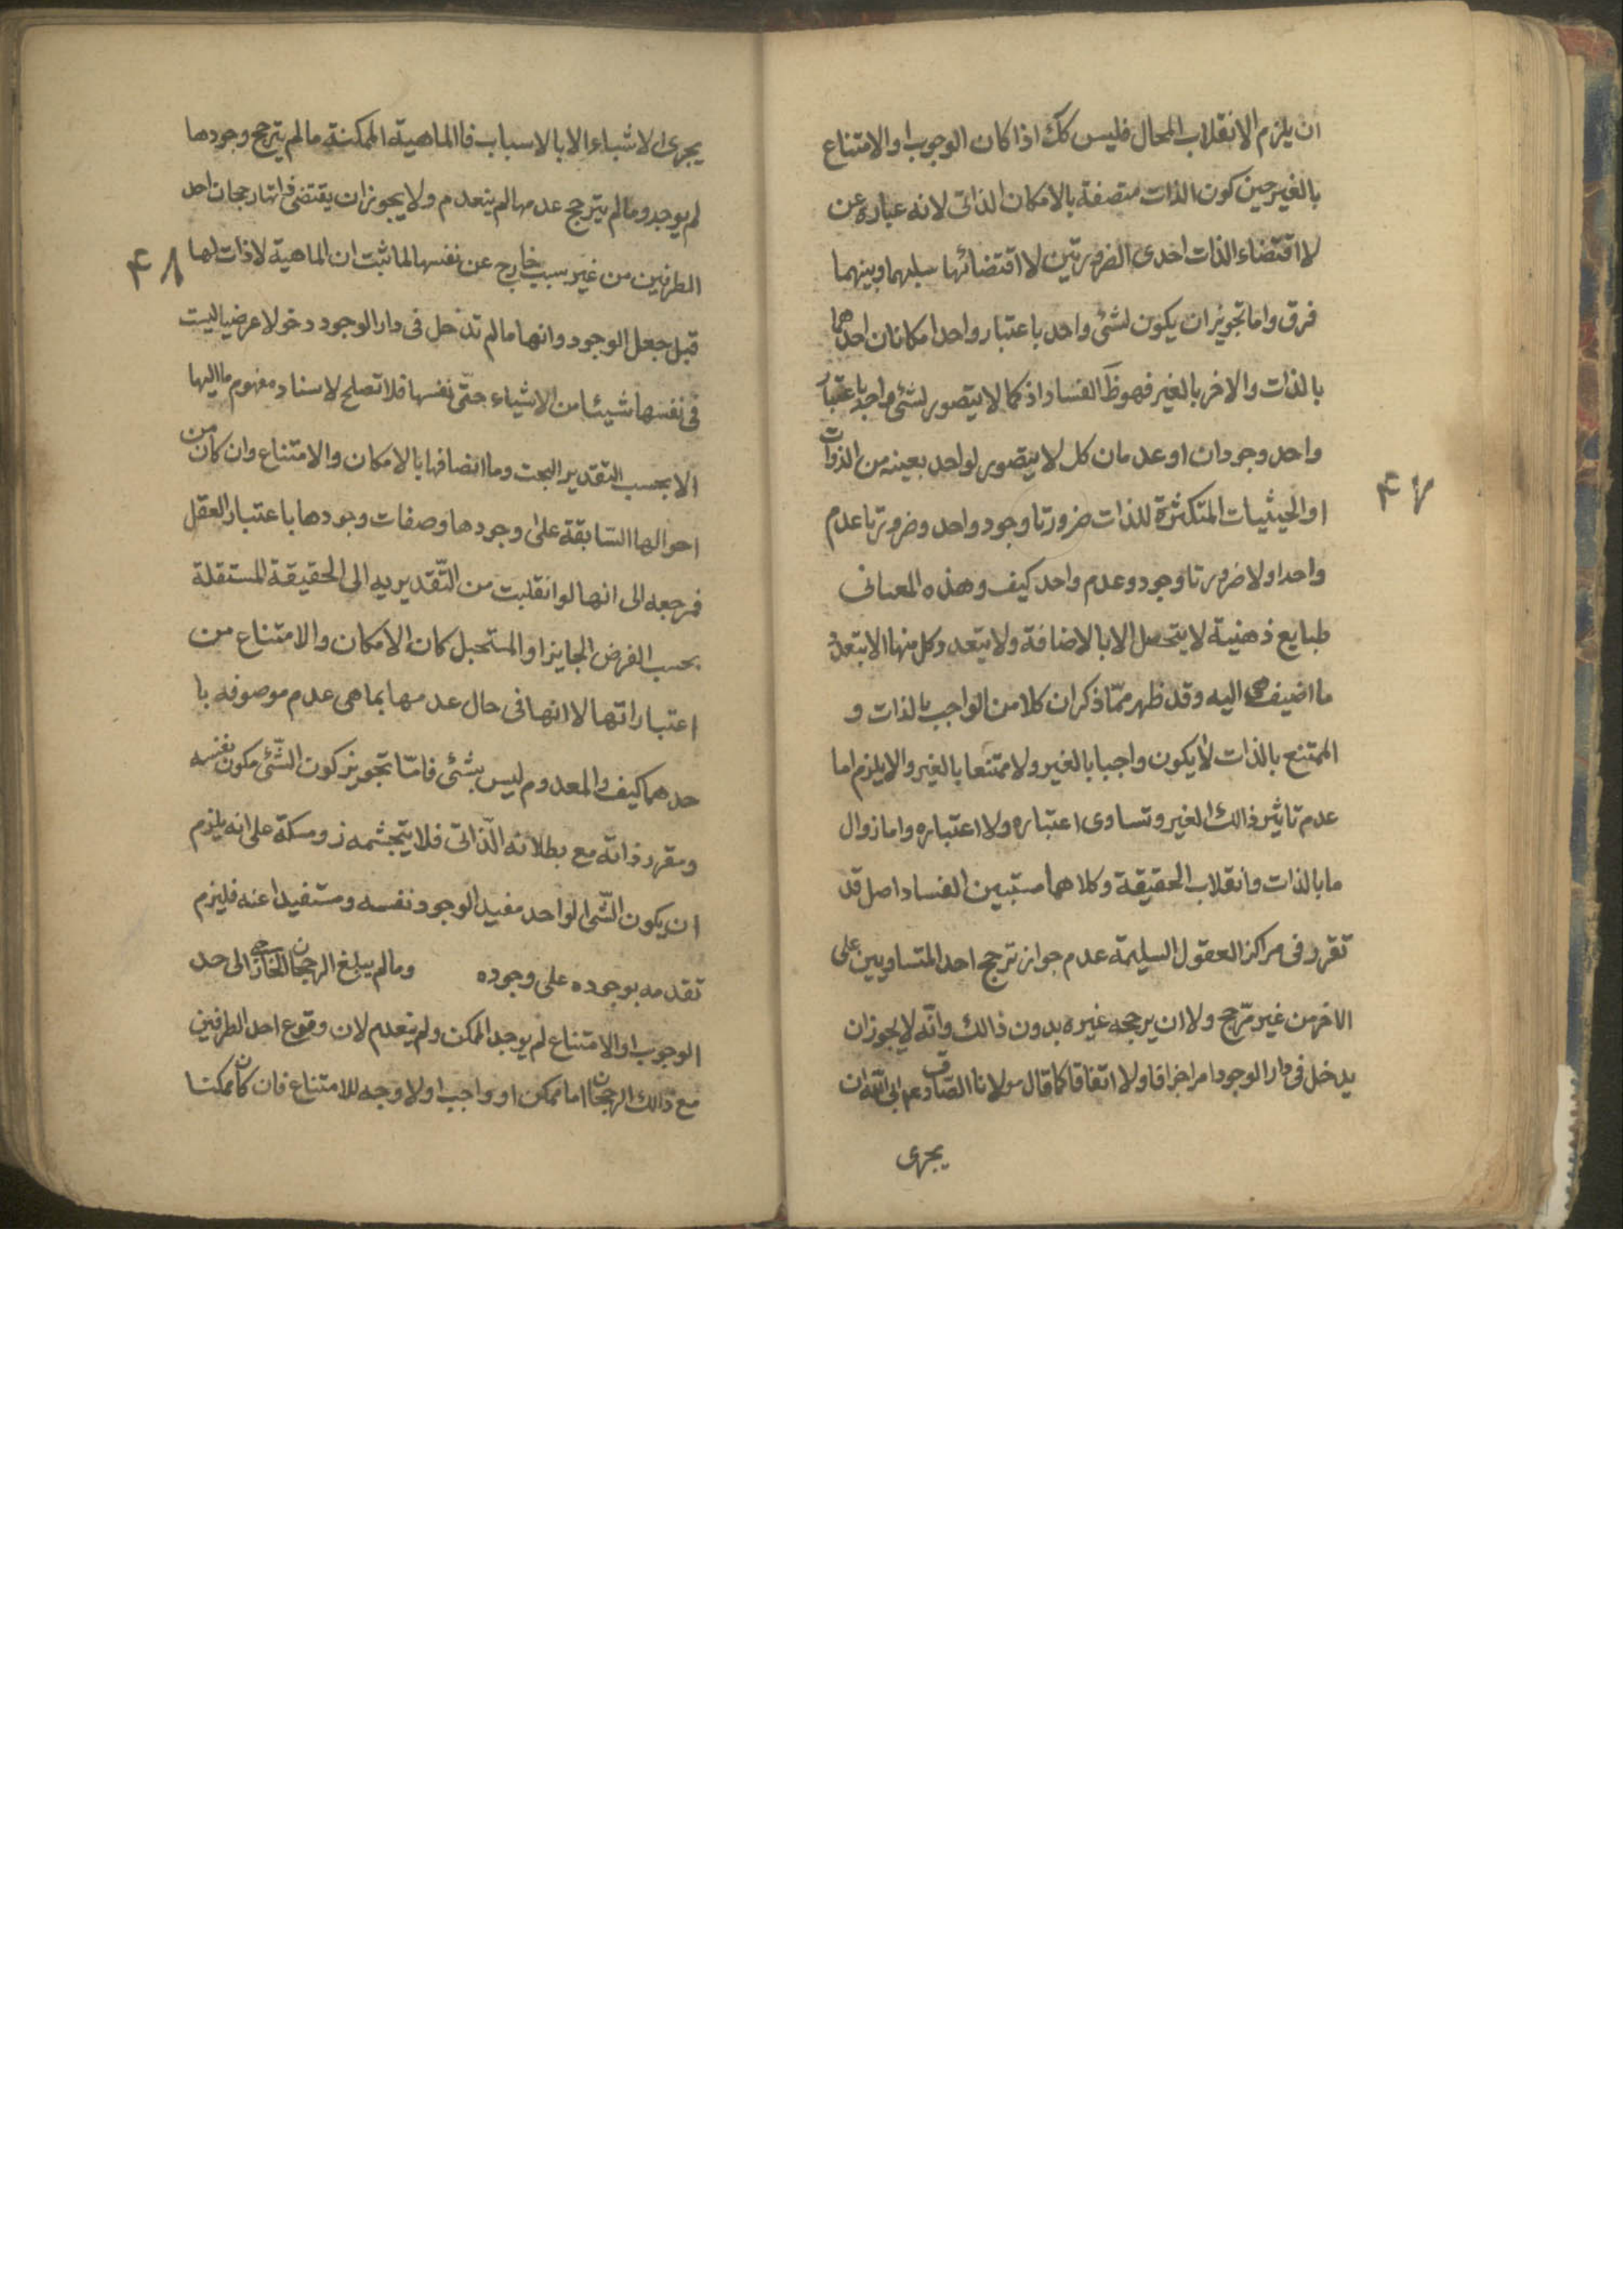 ان يلزم الانقلاب المحال فليس كك اذا كان الوجوب او الامتناع
بالغير حين كون الذات متصفة بالامكان الذاتى لانه عبارة عن
لا اقتضاء الذات احدى الضرورتين لا اقتضائها سلبهما وبينهما
فرق واما تجويز ان يكون لشئ واحد باعتبار واحد امكانان احدهما
بالذات والاخر بالغير فهو ظ الفساد اذ كما لا يتصور لشئ واحد باعتبار
واحد وجودان او عدمان كك لا يتصور لواحد بعينه من الذوات
او الحيثيات المتكثرة للذات ضرورتا وجود واحد وضرورتا عدم
واحد اولا ضرورتا وجود وعدم واحد كيف وهذه المعانى
طبايع ذهنية لا يتحصل الا بالاضافة ولا يتعدد كل منها الا بتعدد
ما اضيف هى اليه وقد ظهر ممّا ذكر ان كلا من الواجب بالذات و
الممتنع بالذات لا يكون واجبا بالغير ولا ممتنعا بالغير والا يلزم اما
عدم تاثير ذالك الغير وتساوى اعتباره ولا اعتباره واما زوال
ما بالذات وانقلاب الحقيقة وكلاهما مستبين الفساد اصل قد
تقرر فى مراكز العقول السليمة عدم جواز ترجح احد المتساويين على
الاخر من غير مرّجح ولا ان يرجحه غيره بدون ذالك وانّه لا يجوز ان
يدخل فى دار الوجود امر اجزافا ولا اتفاقا كما قال مولانا الصادق عم ابى الله ان
يجرى
۴۷
يجرى الاشياء الا بالاسباب فاالماهية الممكنة ما لم يترجح وجودها
لم يوجد وما لم يترجح عدمها لم ينعدم ولا يجوز ان يقتضى ذاتها رجحان احد
الطرفين من غير سبب خارج عن نفسها لما ثبت ان الماهية لا ذات لها
۴۸
قبل جعل الوجود وانها ما لم تدخل فى دار الوجود دخولا عرضيا ليست
فى نفسها شيئا من الاشياء حتّى نفسها فلا تصلح لاسناد مفهوم ما اليها
الا بحسب التقدير البحت وما اتصافها بالامكان والامتناع وان كان من
احوالها السّابقة على وجودها وصفات وجودها باعتبار العقل
فمرجعه الى انها لو انقلبت من التّقديرية الى الحقيقة المستقلة
بحسب الفرض الجايز او المستحيل كان الامكان والامتناع من
اعتباراتها لا انها فى حال عدمها بما هى عدم موصوفه با
حدهما كيف والمعدوم ليس بشئ فامّا تجويز كون الشّئ مكون نفسه
ومقرر ذاته مع بطلانه الّذاتى فلا يتجشمه ذو مسكة على انه يلزم
ان يكون الشّئ الواحد مفيد الوجود نفسه ومستفيدا عنه فليزم
تقدمه بوجوده على وجوده وما لم يبلغ الرجحان الخارجى الى حد
الوجوب او الامتناع لم يوجد الممكن ولم ينعدم لان وقوع احد الطرفين
مع ذالك الرجحان اما ممكن او واجب اولا وجه للامتناع فان كان ممكنا